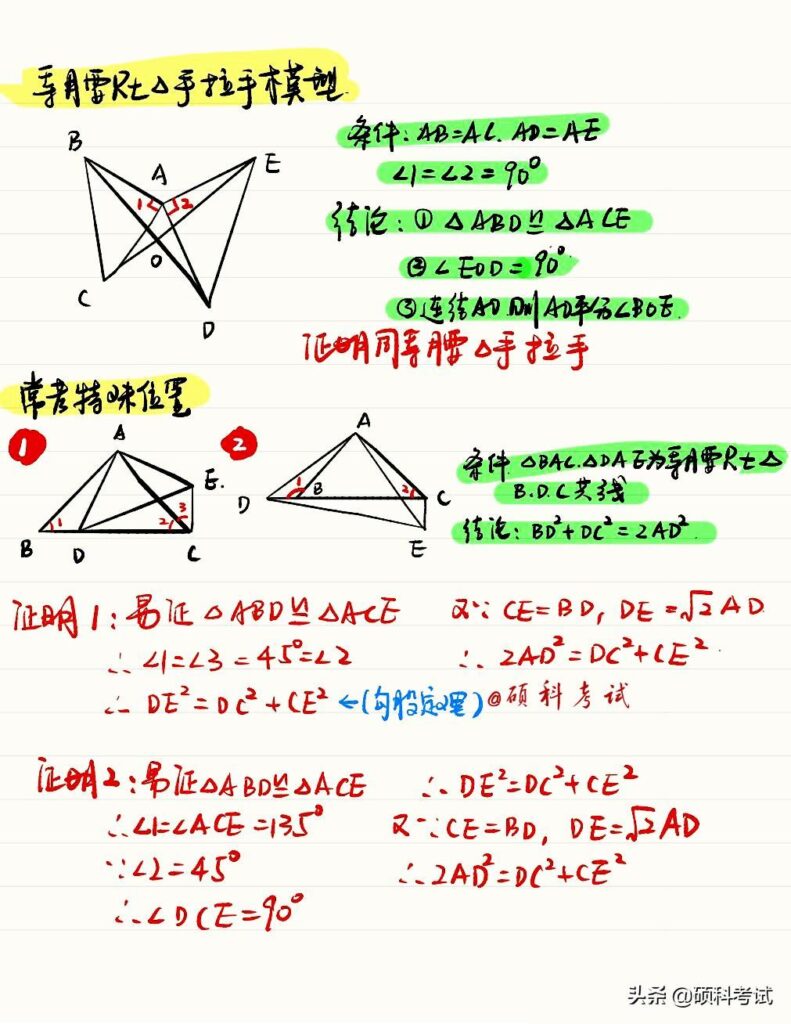 等腰Rt△手拉手模型
条件：AB=AC. AD=AE
∠1=∠2=90°
结论：① △ABD≌△ACE
② ∠EOD=90°
③连结AO则AO平分∠BOE.
证明同等腰△手拉手
B
A
E
1
2
O
C
D
常考特殊位置
1
A
E.
B
D
C
1
2
3
2
A
D
B
C
E
1
2
条件 △BAC.△DAE为等腰Rt△
B.D.C共线
结论：BD²+DC²=2AD²
证明1：易证△ABD≌△ACE
∴∠1=∠3=45°=∠2
∴ DE²=DC²+CE² ←(勾股定理) @硕科考试
又∵CE=BD, DE=√2AD
∴ 2AD²=DC²+CE².
证明2：易证△ABD≌△ACE
∴∠1=∠ACE=135°
∵∠2=45°
∴∠DCE=90°
∴DE²=DC²+CE²
又∵CE=BD, DE=√2AD
∴2AD²=DC²+CE²
头条 @硕科考试